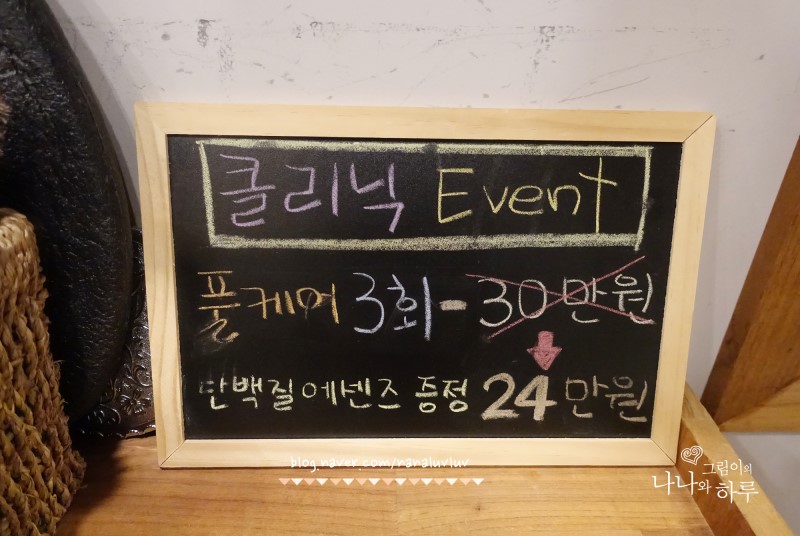 클리닉 Event
풀케어 3회 - 30만원
단백질 에센즈 증정 24만원
blog.naver.com/nanaluvluv
그림이의
나나와 하루